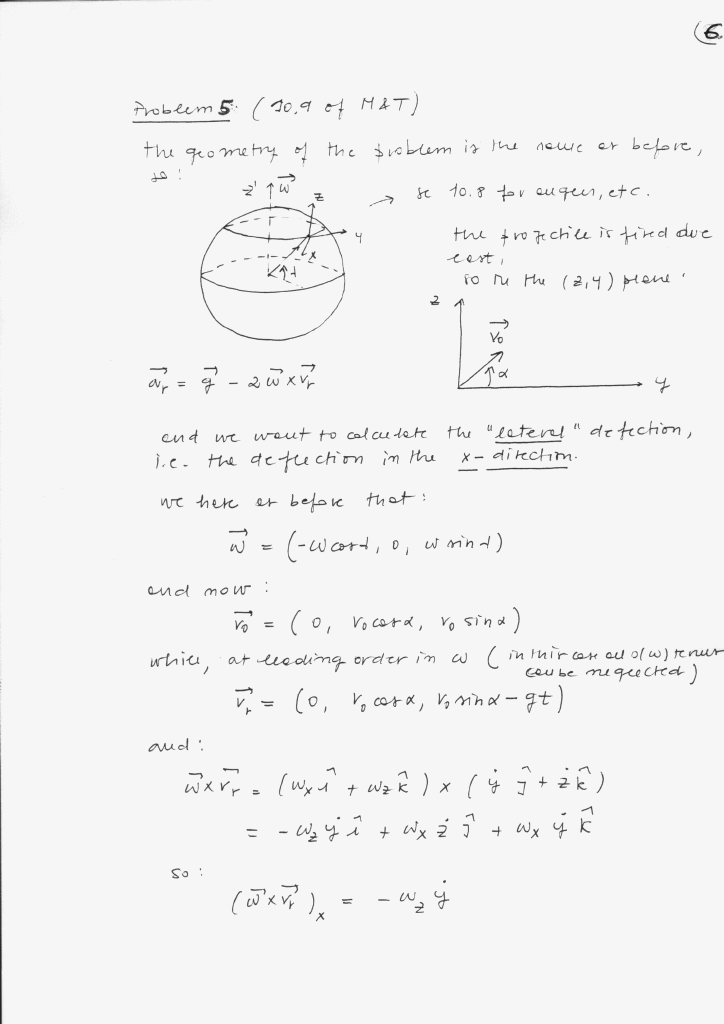 6
Problem 5. (10.9 of M&T)
the geometry of the problem is the same as before,
so :
z' ω⃗ z
y
x
λ
→ see 10.8 for angles, etc.
the projectile is fired due
east,
so in the (z,y) plane :
z
v⃗₀
α
y
a⃗ᵣ = g⃗ - 2 ω⃗ × v⃗ᵣ
and we want to calculate the "lateral" defection,
i.e. the deflection in the x-direction.
we have as before that :
ω⃗ = (-ω cos λ, 0, ω sin λ)
and now :
v⃗₀ = (0, v₀ cos α, v₀ sin α)
while, at leading order in ω (in this case all O(ω) terms
can be neglected)
v⃗ᵣ = (0, v₀ cos α, v₀ sin α - gt)
and :
ω⃗ × v⃗ᵣ = (ωₓ î + ω_z k̂) × (ẏ ĵ + ż k̂)
= - ω_z ẏ î + ωₓ ż ĵ + ωₓ ẏ k̂
so :
(ω⃗ × v⃗ᵣ)ₓ = - ω_z ẏ